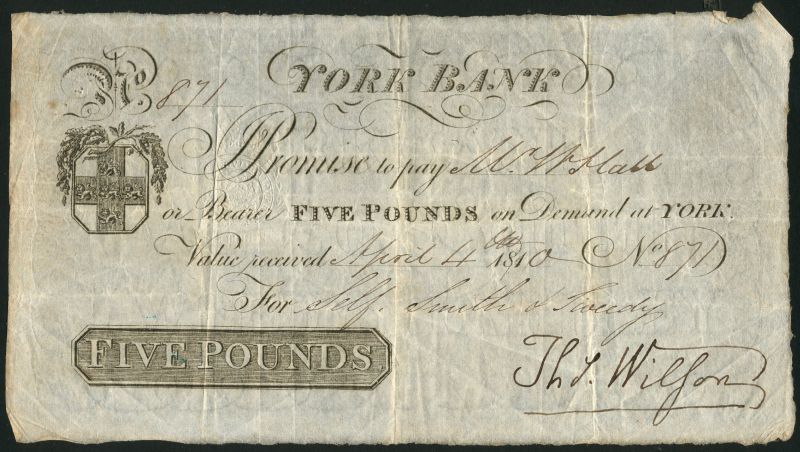 YORK BANK
No 871
I Promise to pay Mr. W Hall
or Bearer FIVE POUNDS on Demand at YORK.
Value received April 4th 1810 No 871
For Self. Smith & Tweedy
FIVE POUNDS
Thos. Wilson